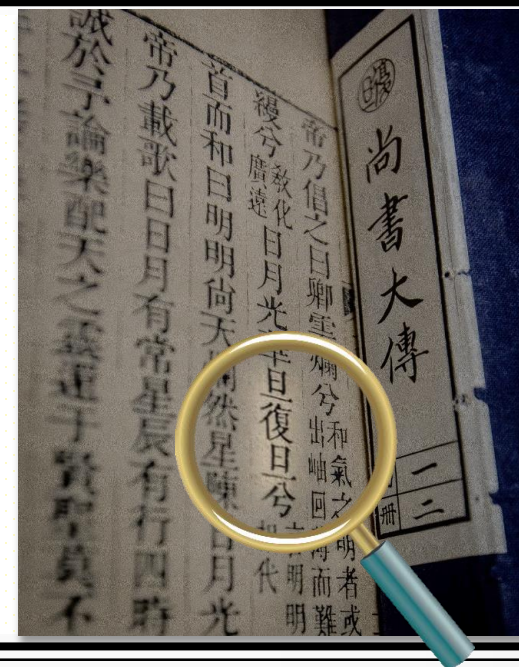 尚書大傳
一
二
冊
帝乃倡之曰卿雲爛兮
和氣之明者或
出岫回薄而難
縵兮
教化
廣遠
日月光華旦復旦兮
明明
相代
首而和曰明明尚天爛然星陳日月光
帝乃載歌曰日月有常星辰有行四時
誠於予論樂配天之靈遷于賢聖莫不